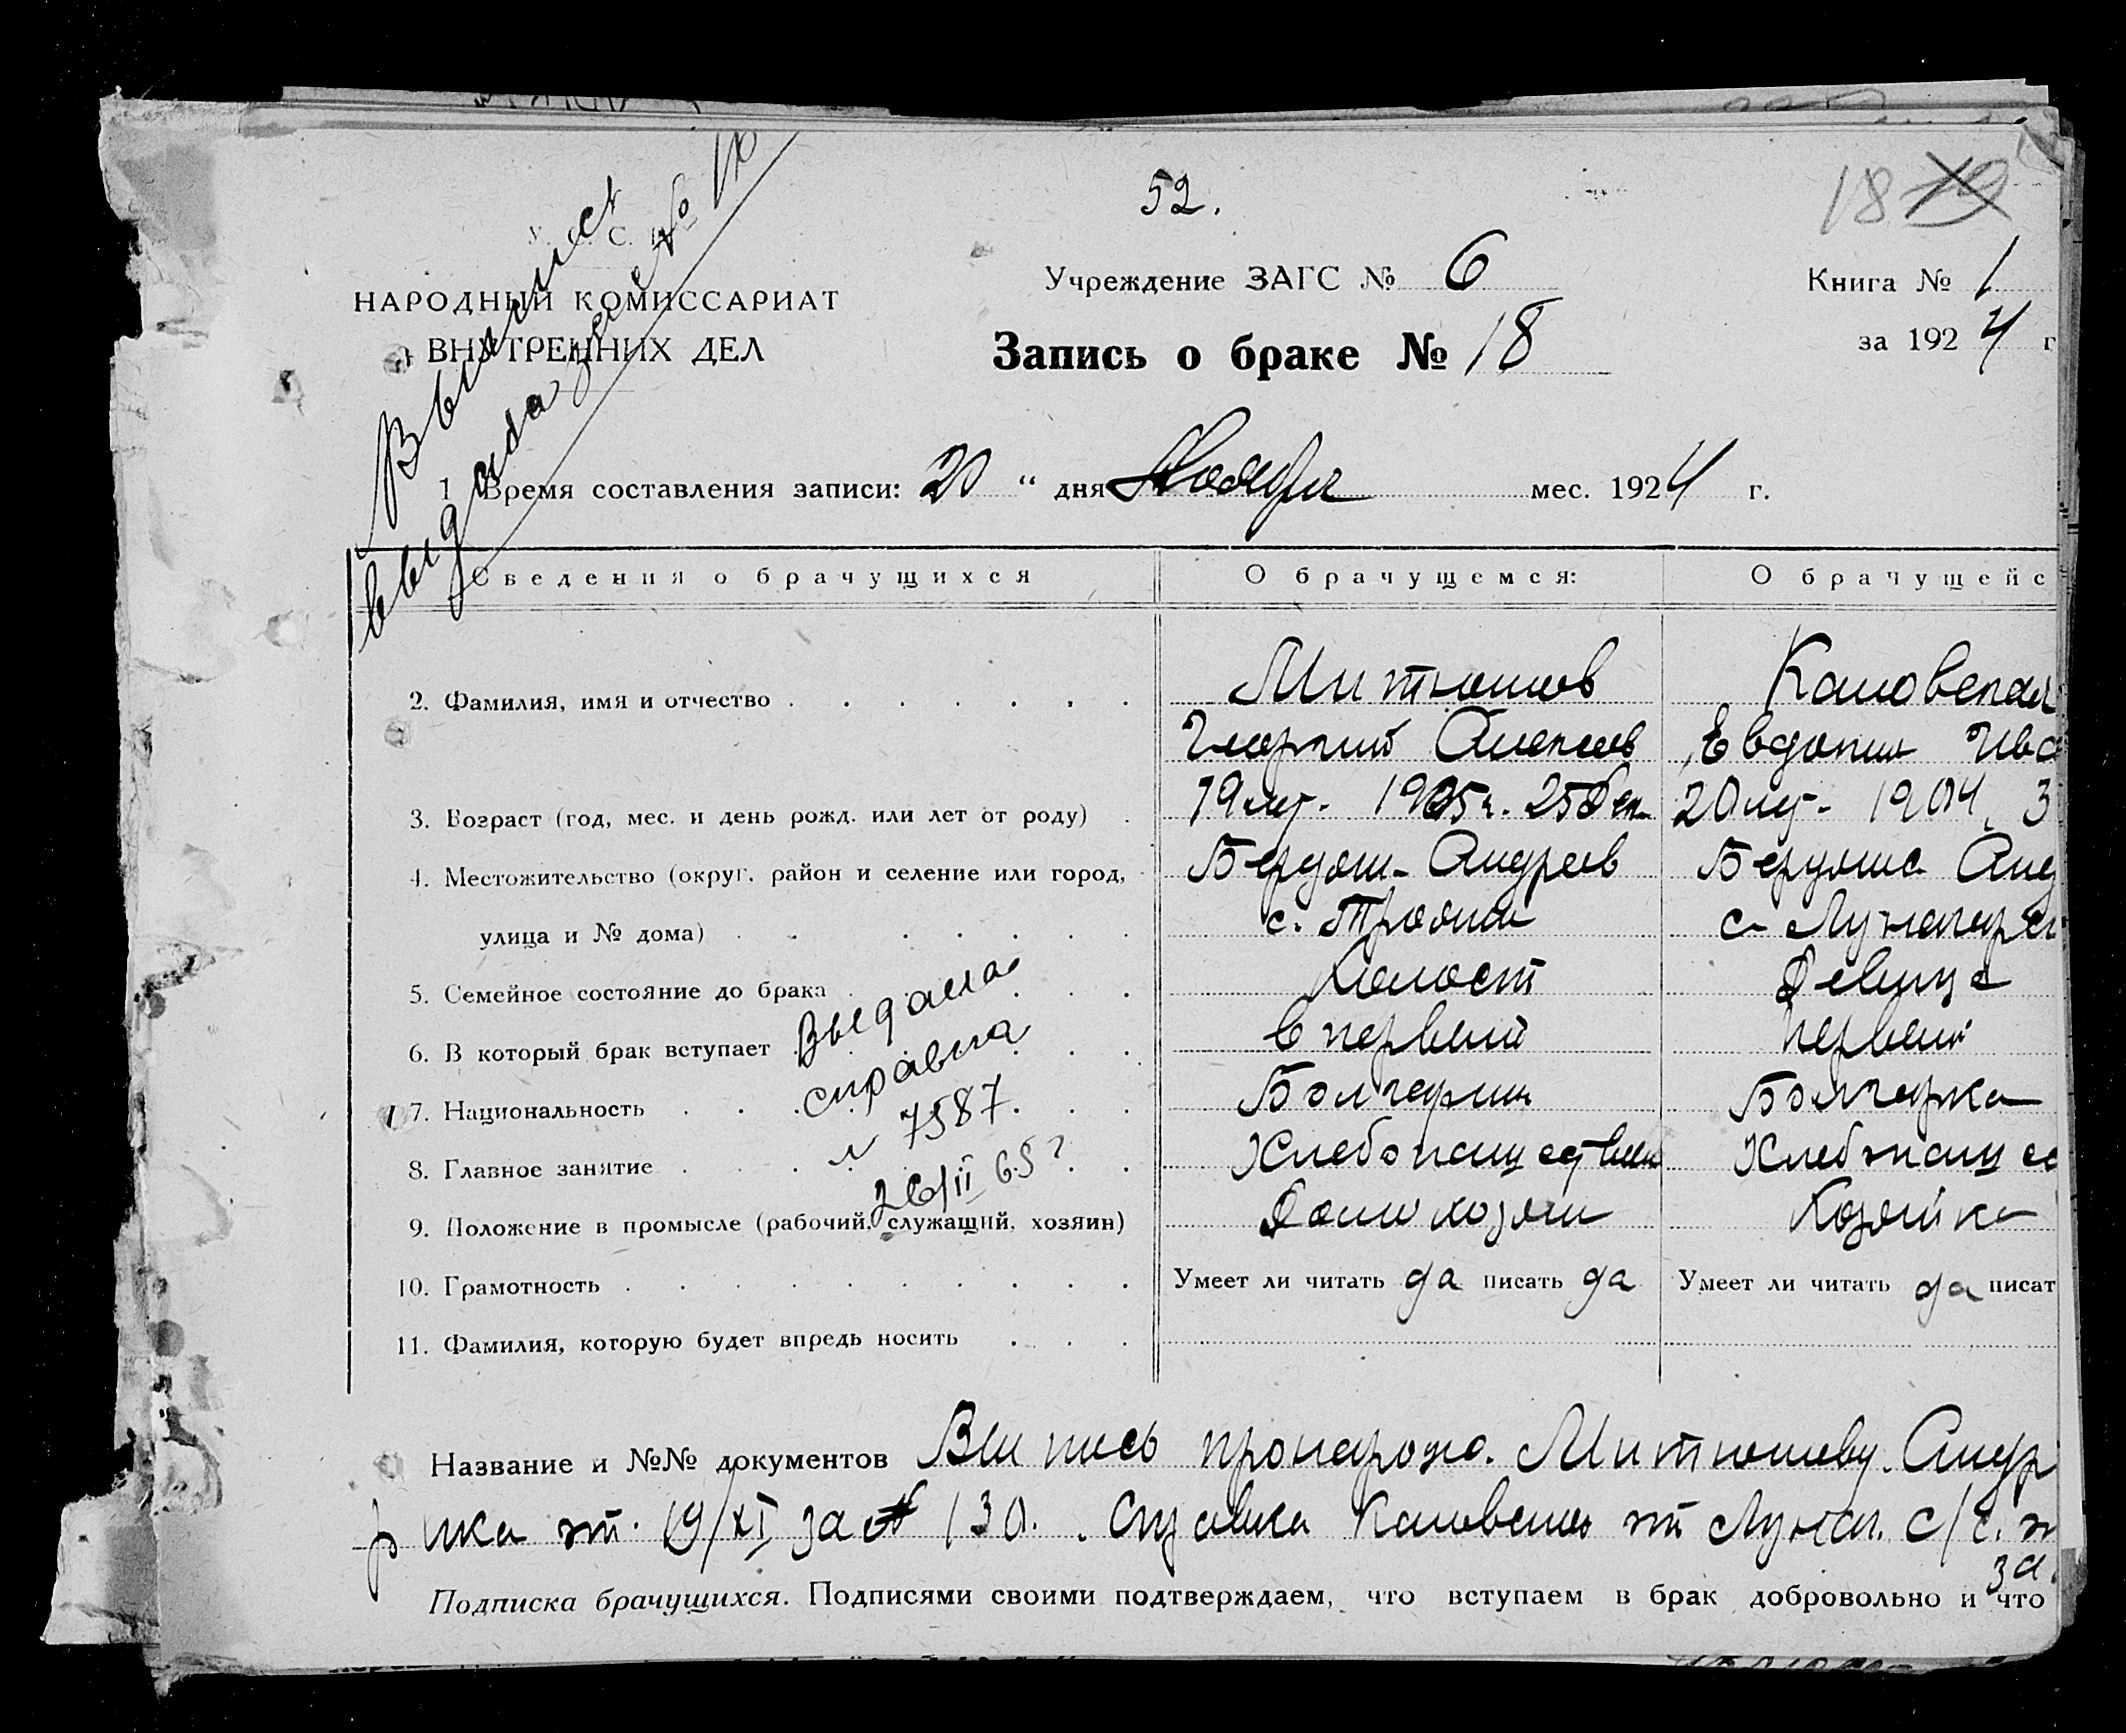 52.
18
У. С. С. Р.
НАРОДНЫЙ КОМИССАРИАТ
ВНУТРЕННИХ ДЕЛ
Выпись
выдана
Учреждение ЗАГС № 6
Книга № 1
за 1924 г
Запись о браке № 18
1 Время составления записи: 20 “ дня Ноября мес. 1924 г.
Сведения о брачущихся О брачущемся: О брачущейс
2. Фамилия, имя и отчество Митюшов
Георгий Алексеев Евдокия Ива
3. Возраст (год, мес. и день рожд. или лет от роду) 19 лет. 1905 г. 25 20 лет. 1904, 3
4. Местожительство (округ, район и селение или город, Бердян. Андреев Бердянс Анд
улица и № дома) с. Трояны с.
5. Семейное состояние до брака Холост Девица
6. В который брак вступает в первый первый
7. Национальность Болгарин Болгарка
8. Главное занятие Хлебопашество Хлебопаш
9. Положение в промысле (рабочий, служащий, хозяин) Домохозяин Хозяйка
10. Грамотность Умеет ли читать да писать да Умеет ли читать да писат
11. Фамилия, которую будет впредь носить
Выдана
справка
№ 7587
26/II 65 г
Название и №№ документов Выпись Митюшову. Андр
р ика от. 19/XI за № 130. Справка от с/с.
за.
Подписка брачущихся. Подписями своими подтверждаем, что вступаем в брак добровольно и что